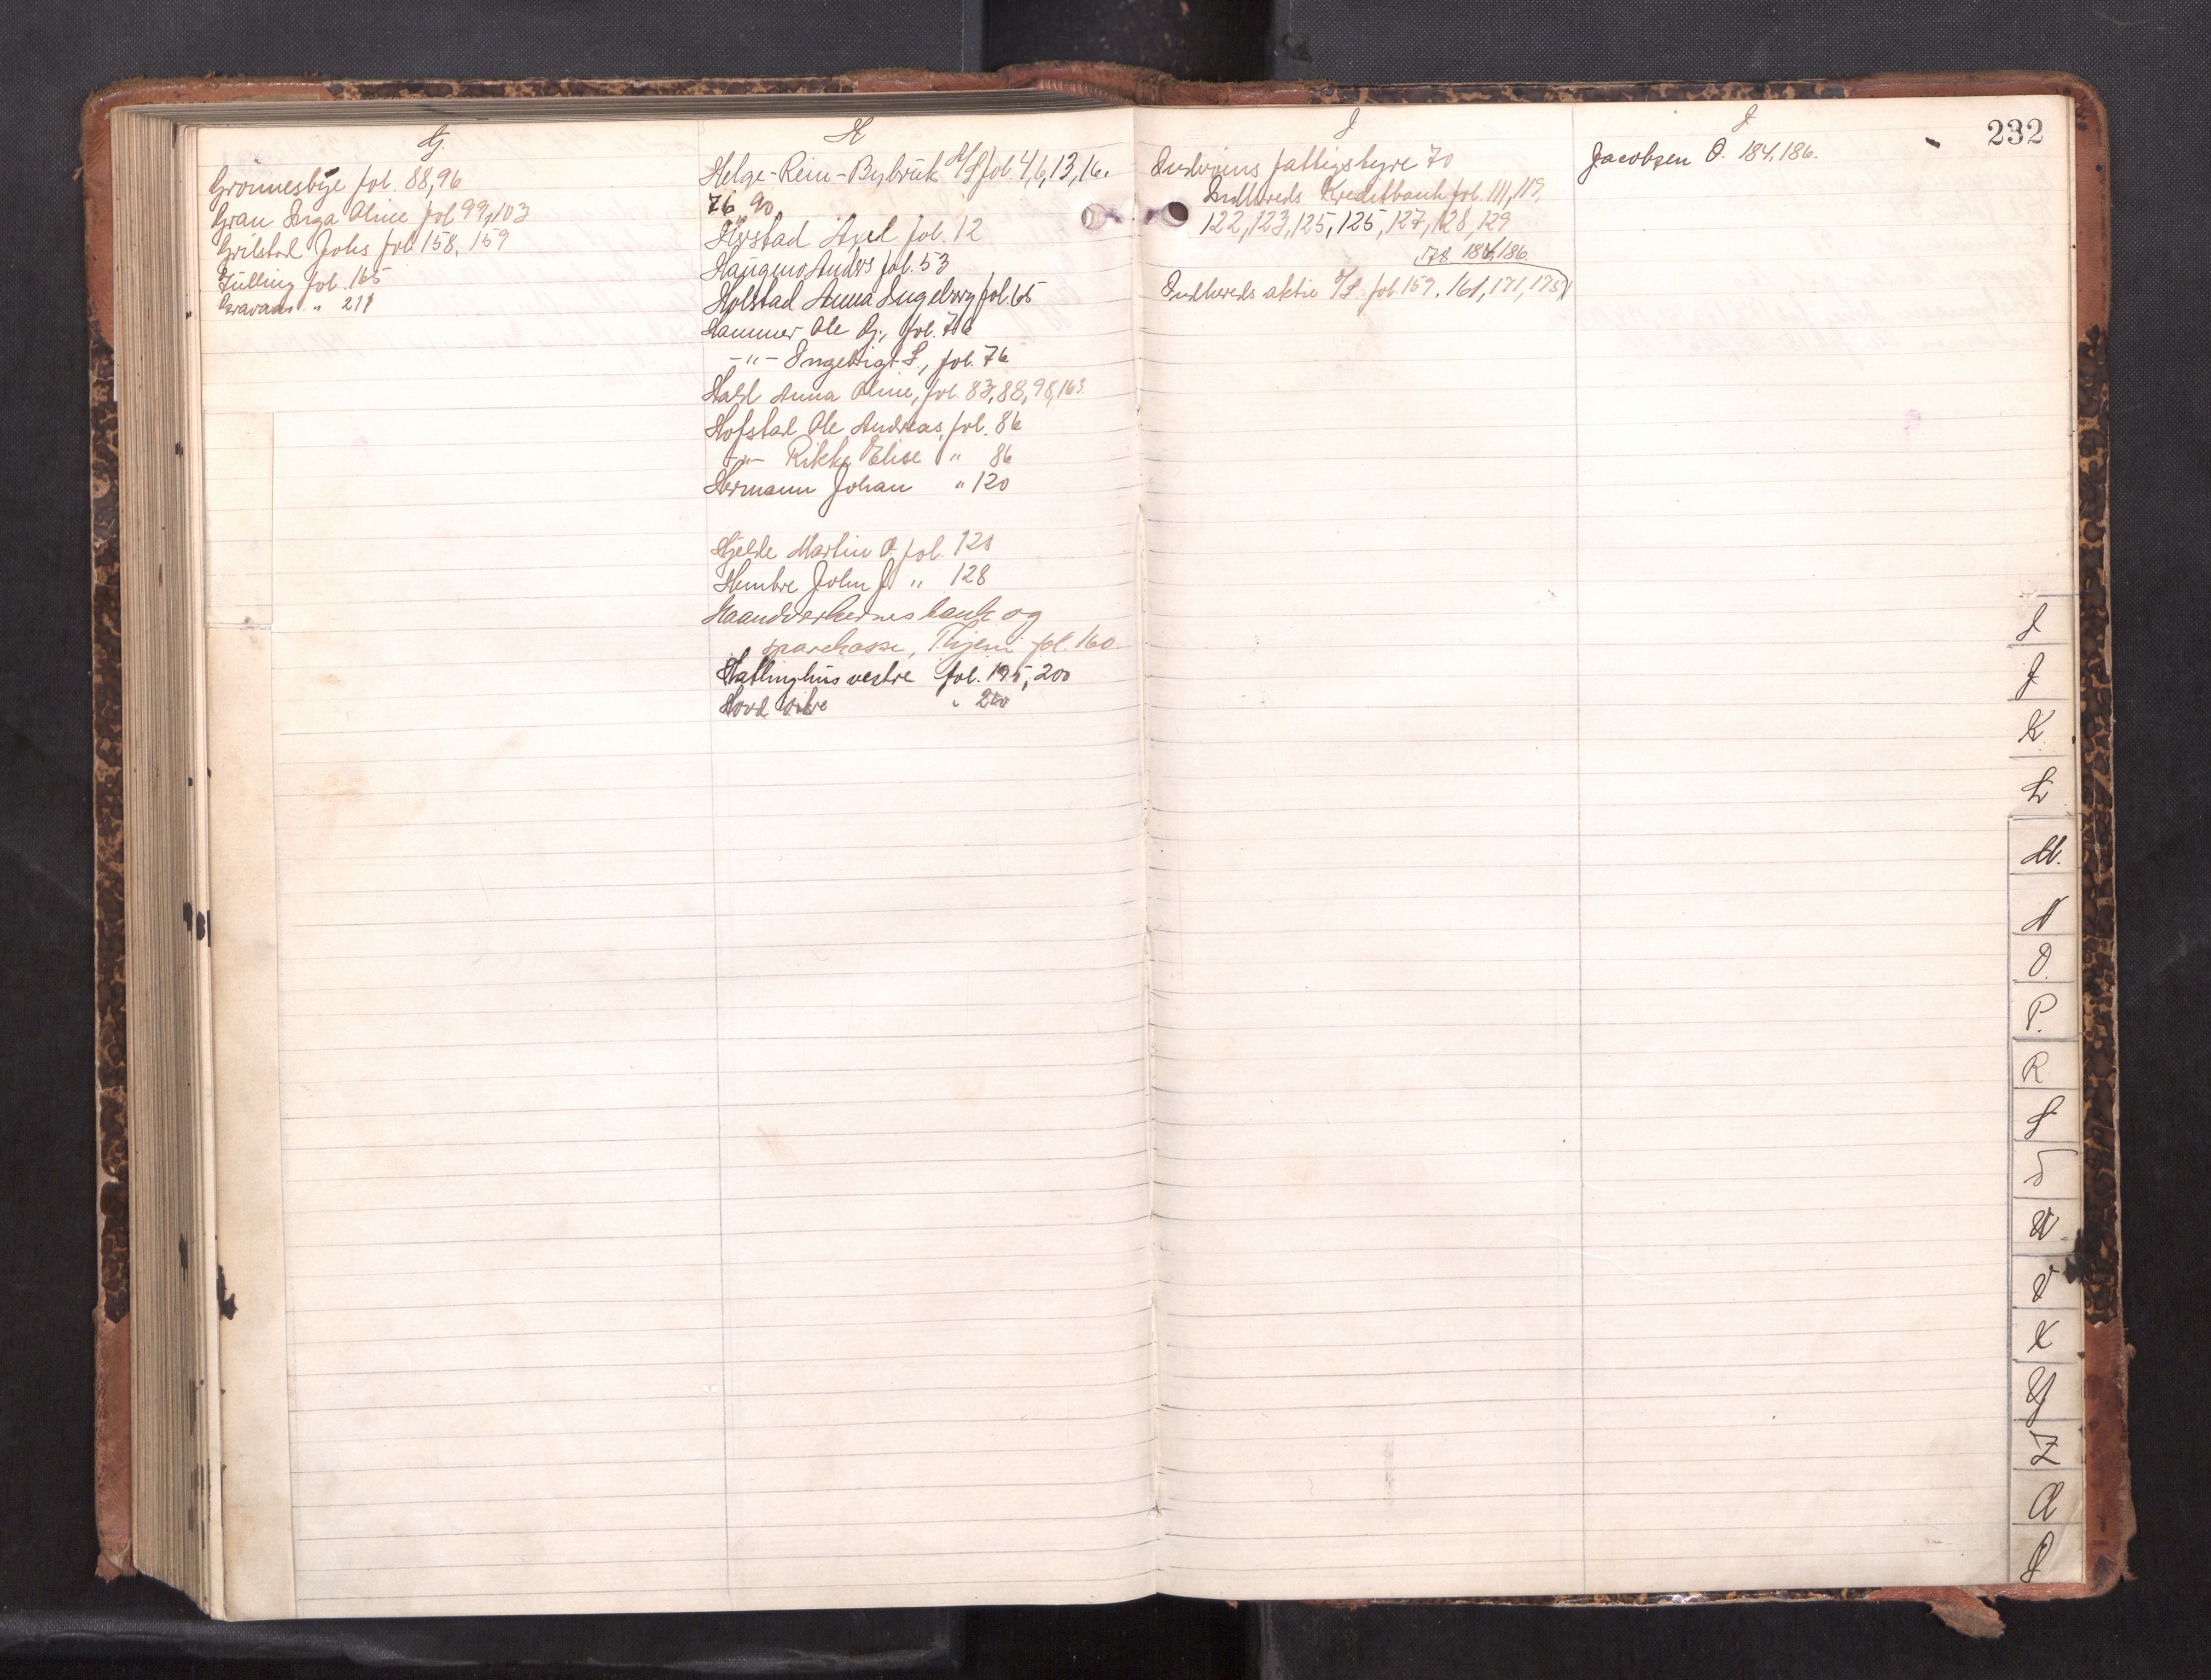 G.
Grönnesbye fol. 88, 96
Gran Inga Oline fol 99, 103
Grilstad Johs fol. 158, 159
fol. 165
" 211
H
Helge-Rein-Bybruk A/S fol. 4, 6, 13, 16.
76, 90
Hegstad Axel fol. 12
Haugmo Anders fol. 53
Holstad Anna Ingeborg fol. 65
Hammer Ole Oj., fol. 76
-"- Ingebrigt L, fol. 76
Hald Anna Oline, fol. 83, 88, 98, 163
Hofstad Ole Andreas, fol. 86
-"- Rikke Elise " 86
Hermann Johan " 120
Hjelde Martin O. fol. 128
Hembre John J " 128
Haandverkernes bank og
sparekasse, Thjem fol. 160.
Hallinghus vestre fol. 195, 200
Hovd
I
Inderöens fattigstyre 70
Indhereds Kreditbank fol. 111, 119,
122, 123, 125, 125, 127, 128, 129
178 184, 186
Indhereds aktie fol. 159, 161, 171, 175
J
Jacobsen O. 184, 186.
232
I
J
K
L
M.
N
O.
P.
R
S
T
U
V
X
Y
Z
Æ
Ø